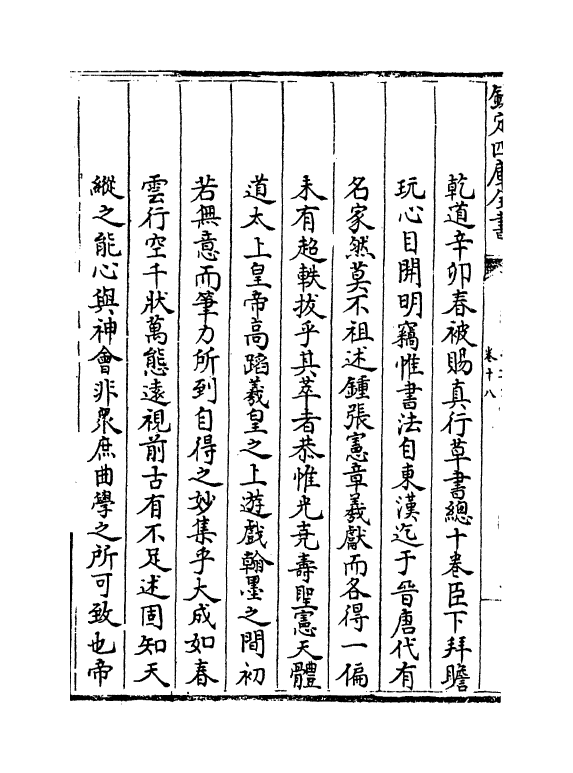 欽定四庫全書
卷十八
乾道辛卯春被賜真行草書總十卷臣下拜瞻
玩心目開明竊惟書法自東漢迄于晉唐代有
名家然莫不祖述鍾張憲章羲獻而各得一偏
未有超軼拔乎其萃者恭惟光堯壽聖憲天體
道太上皇帝高蹈羲皇之上遊戲翰墨之間初
若無意而筆力所到自得之妙集乎大成如春
雲行空千狀萬態逺視前古有不足述固知天
縱之能心與神會非衆庶曲學之所可致也帝